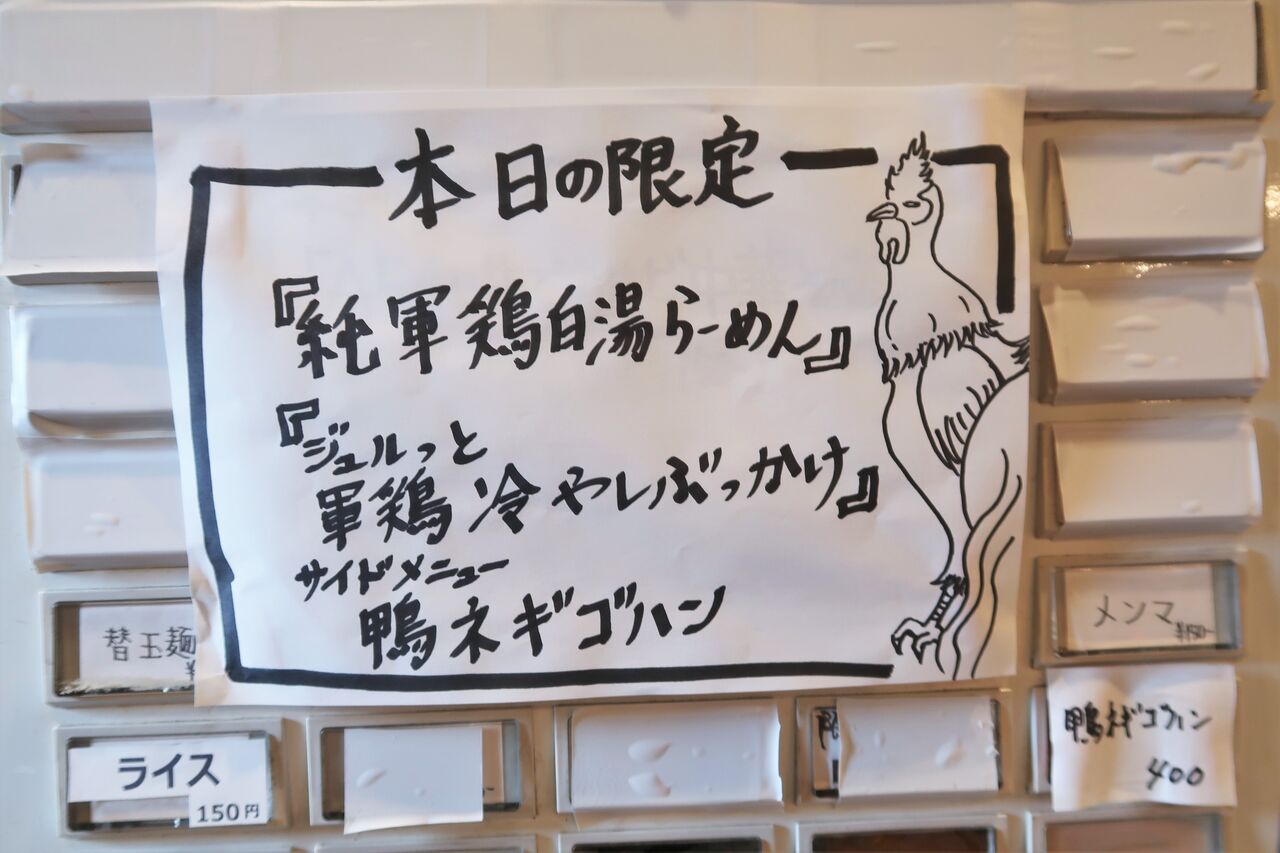 本日の限定
『純軍鶏白湯らーめん』
『ジュルっと
軍鶏冷やしぶっかけ』
サイドメニュー
鴨ネギゴハン
替玉麺
メンマ
¥150-
ライス
150円
限
鴨ネギゴハン
400